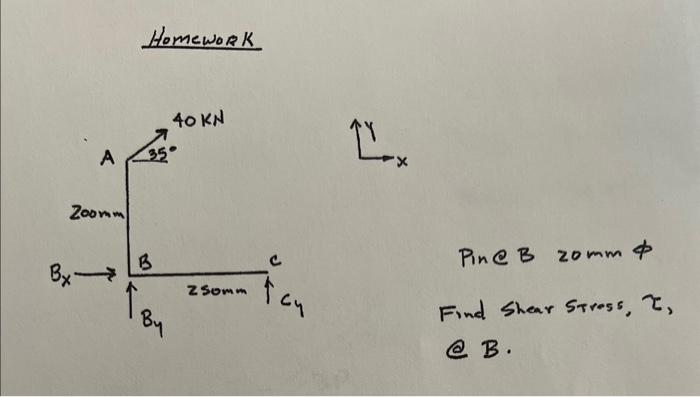 Homework
40 KN
Y
A
35°
x
200mm
B
C
Bx
250mm
Cy
By
Pin @ B 20mm ϕ
Find Shear Stress, τ,
@ B.